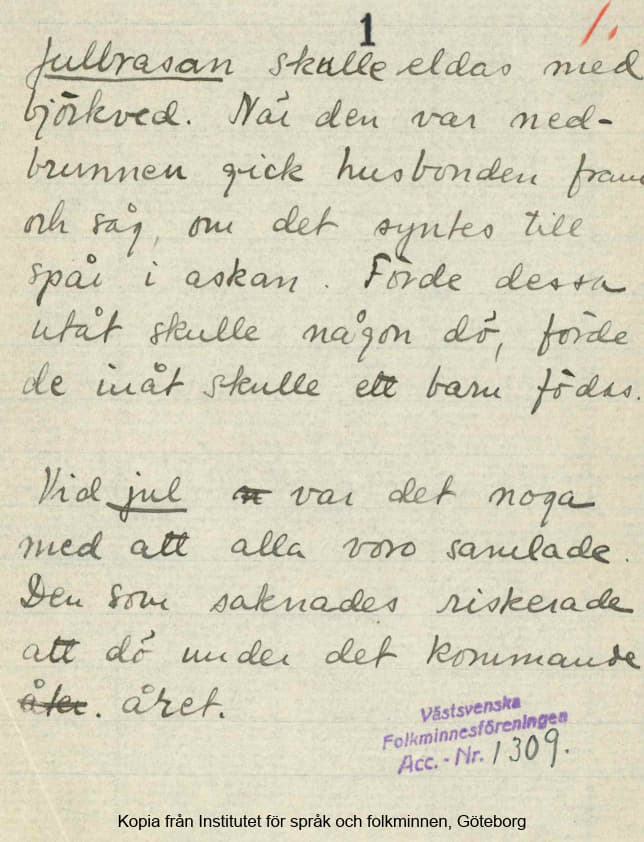 1
1.
Julbrasan skulle eldas med
björkved. När den var ned-
brunnen gick husbonden fram
och såg, om det syntes till
spår i askan. Förde dessa
utåt skulle någon dö, förde
de inåt skulle ett barn födas.
Vid jul var det noga
med att alla voro samlade.
Den som saknades riskerade
att dö under det kommande
året.
Västsvenska
Folkminnesföreningen
Acc. - Nr. 1309.
Kopia från Institutet för språk och folkminnen, Göteborg